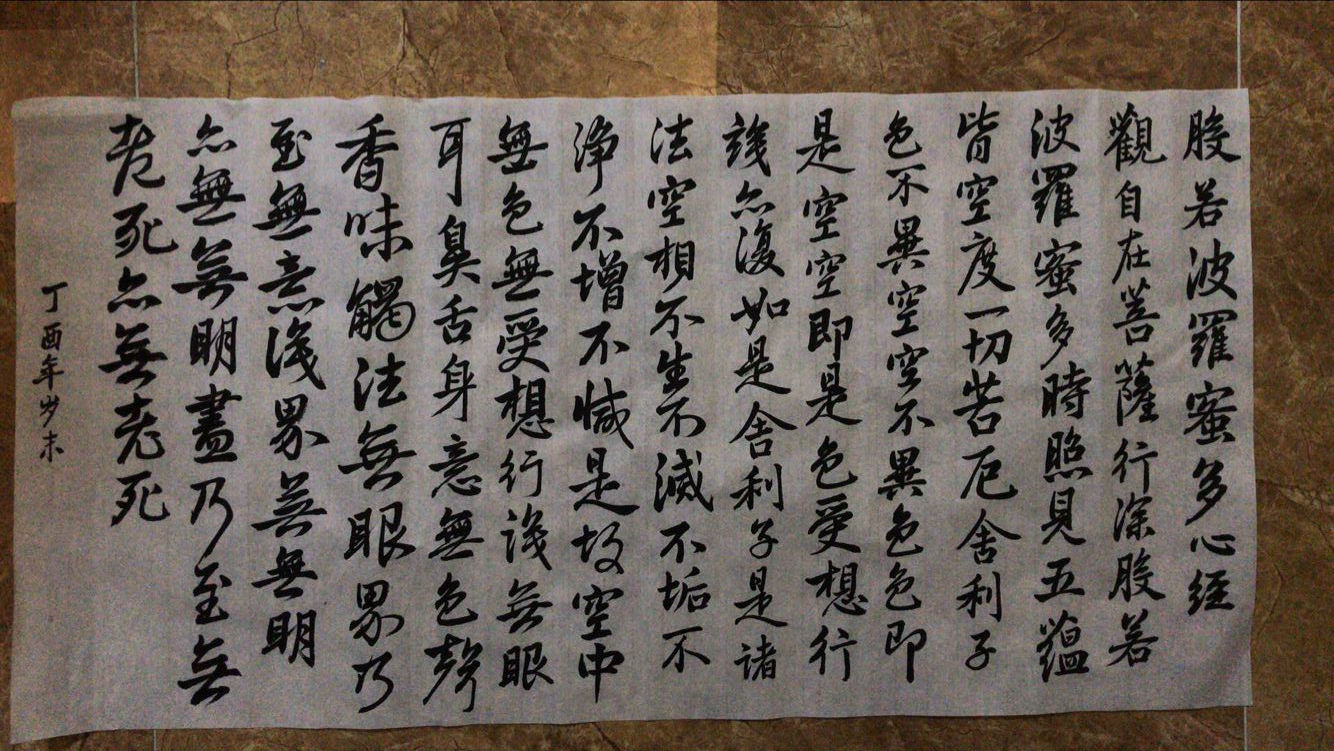 般若波羅蜜多心經
觀自在菩薩行深般若
波羅蜜多時照見五蘊
皆空度一切苦厄舍利子
色不異空空不異色色即
是空空即是色受想行
識亦復如是舍利子是諸
法空相不生不滅不垢不
淨不增不減是故空中
無色無受想行識無眼
耳鼻舌身意無色聲
香味觸法無眼界乃
至無意識界無無明
亦無無明盡乃至無
老死亦無老死
丁酉年岁末